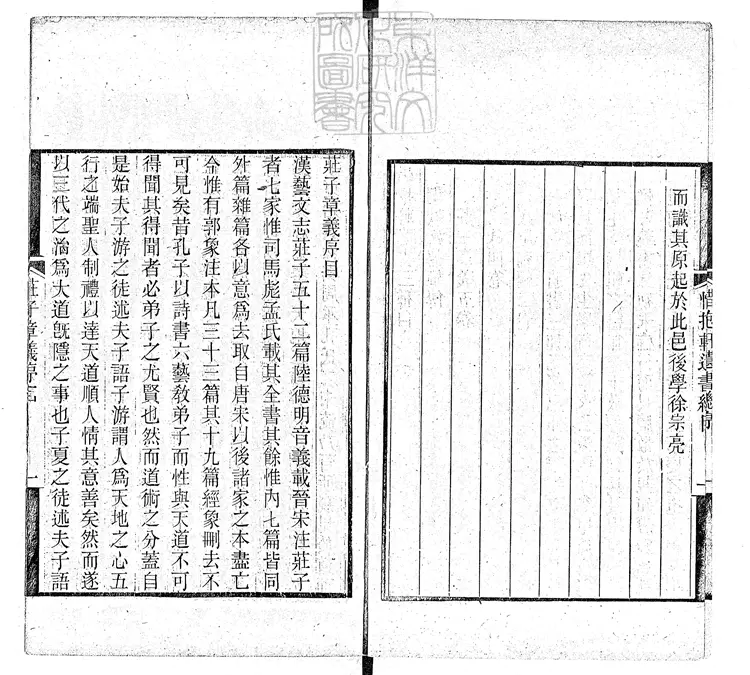 東洋文
化研究
所圖書
惜抱軒遺書總序
一
而識其原起於此邑後學徐宗亮
莊子章義序目
漢藝文志莊子五十二篇陸德明音義載晉宋注莊子
者七家惟司馬彪孟氏載其全書其餘惟內七篇皆同
外篇雜篇各以意爲去取自唐宋以後諸家之本盡亡
今惟有郭象注本凡三十三篇其十九篇經象刪去不
可見矣昔孔子以詩書六藝敎弟子而性與天道不可
得聞其得聞者必弟子之尤賢也然而道術之分蓋自
是始夫子游之徒述夫子語子游謂人爲天地之心五
行之端聖人制禮以達天道順人情其意善矣然而遂
以三代之治爲大道旣隱之事也子夏之徒述夫子語
莊子章義序目
一